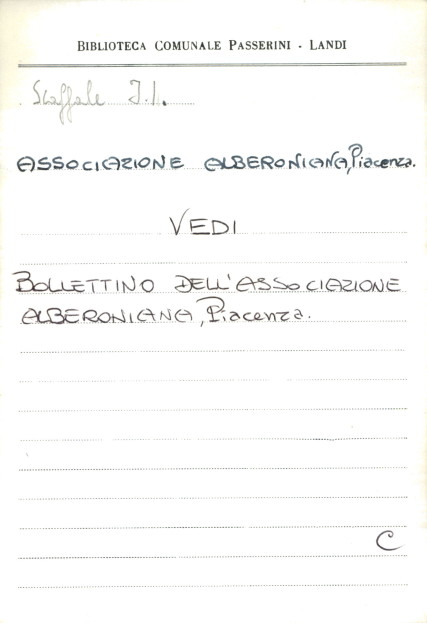 BIBLIOTECA COMUNALE PASSERINI - LANDI
Scaffale I.1.
ASSOCIAZIONE ALBERONIANA, Piacenza.
VEDI
BOLLETTINO DELL'ASSOCIAZIONE
ALBERONIANA, Piacenza.
C